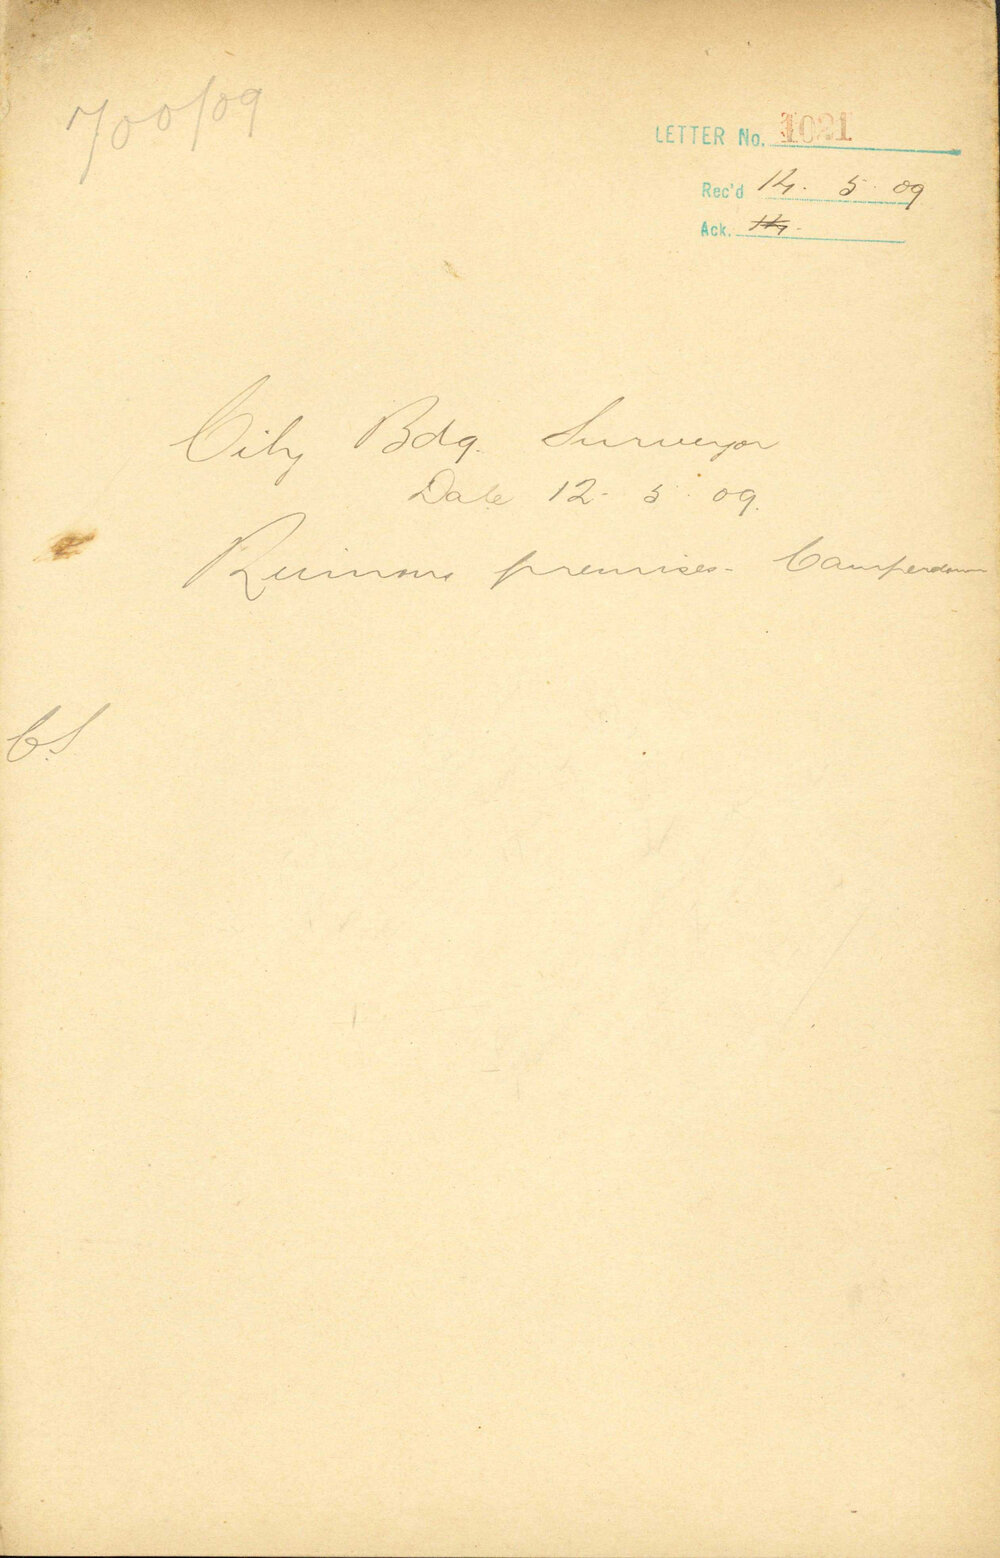 700/09
LETTER No. 1021
Rec'd 14. 5. 09
Ack. 14.
City Bdg. Surveyor
Date 12. 5. 09.
Ruinous premises - Camperdown
C.S